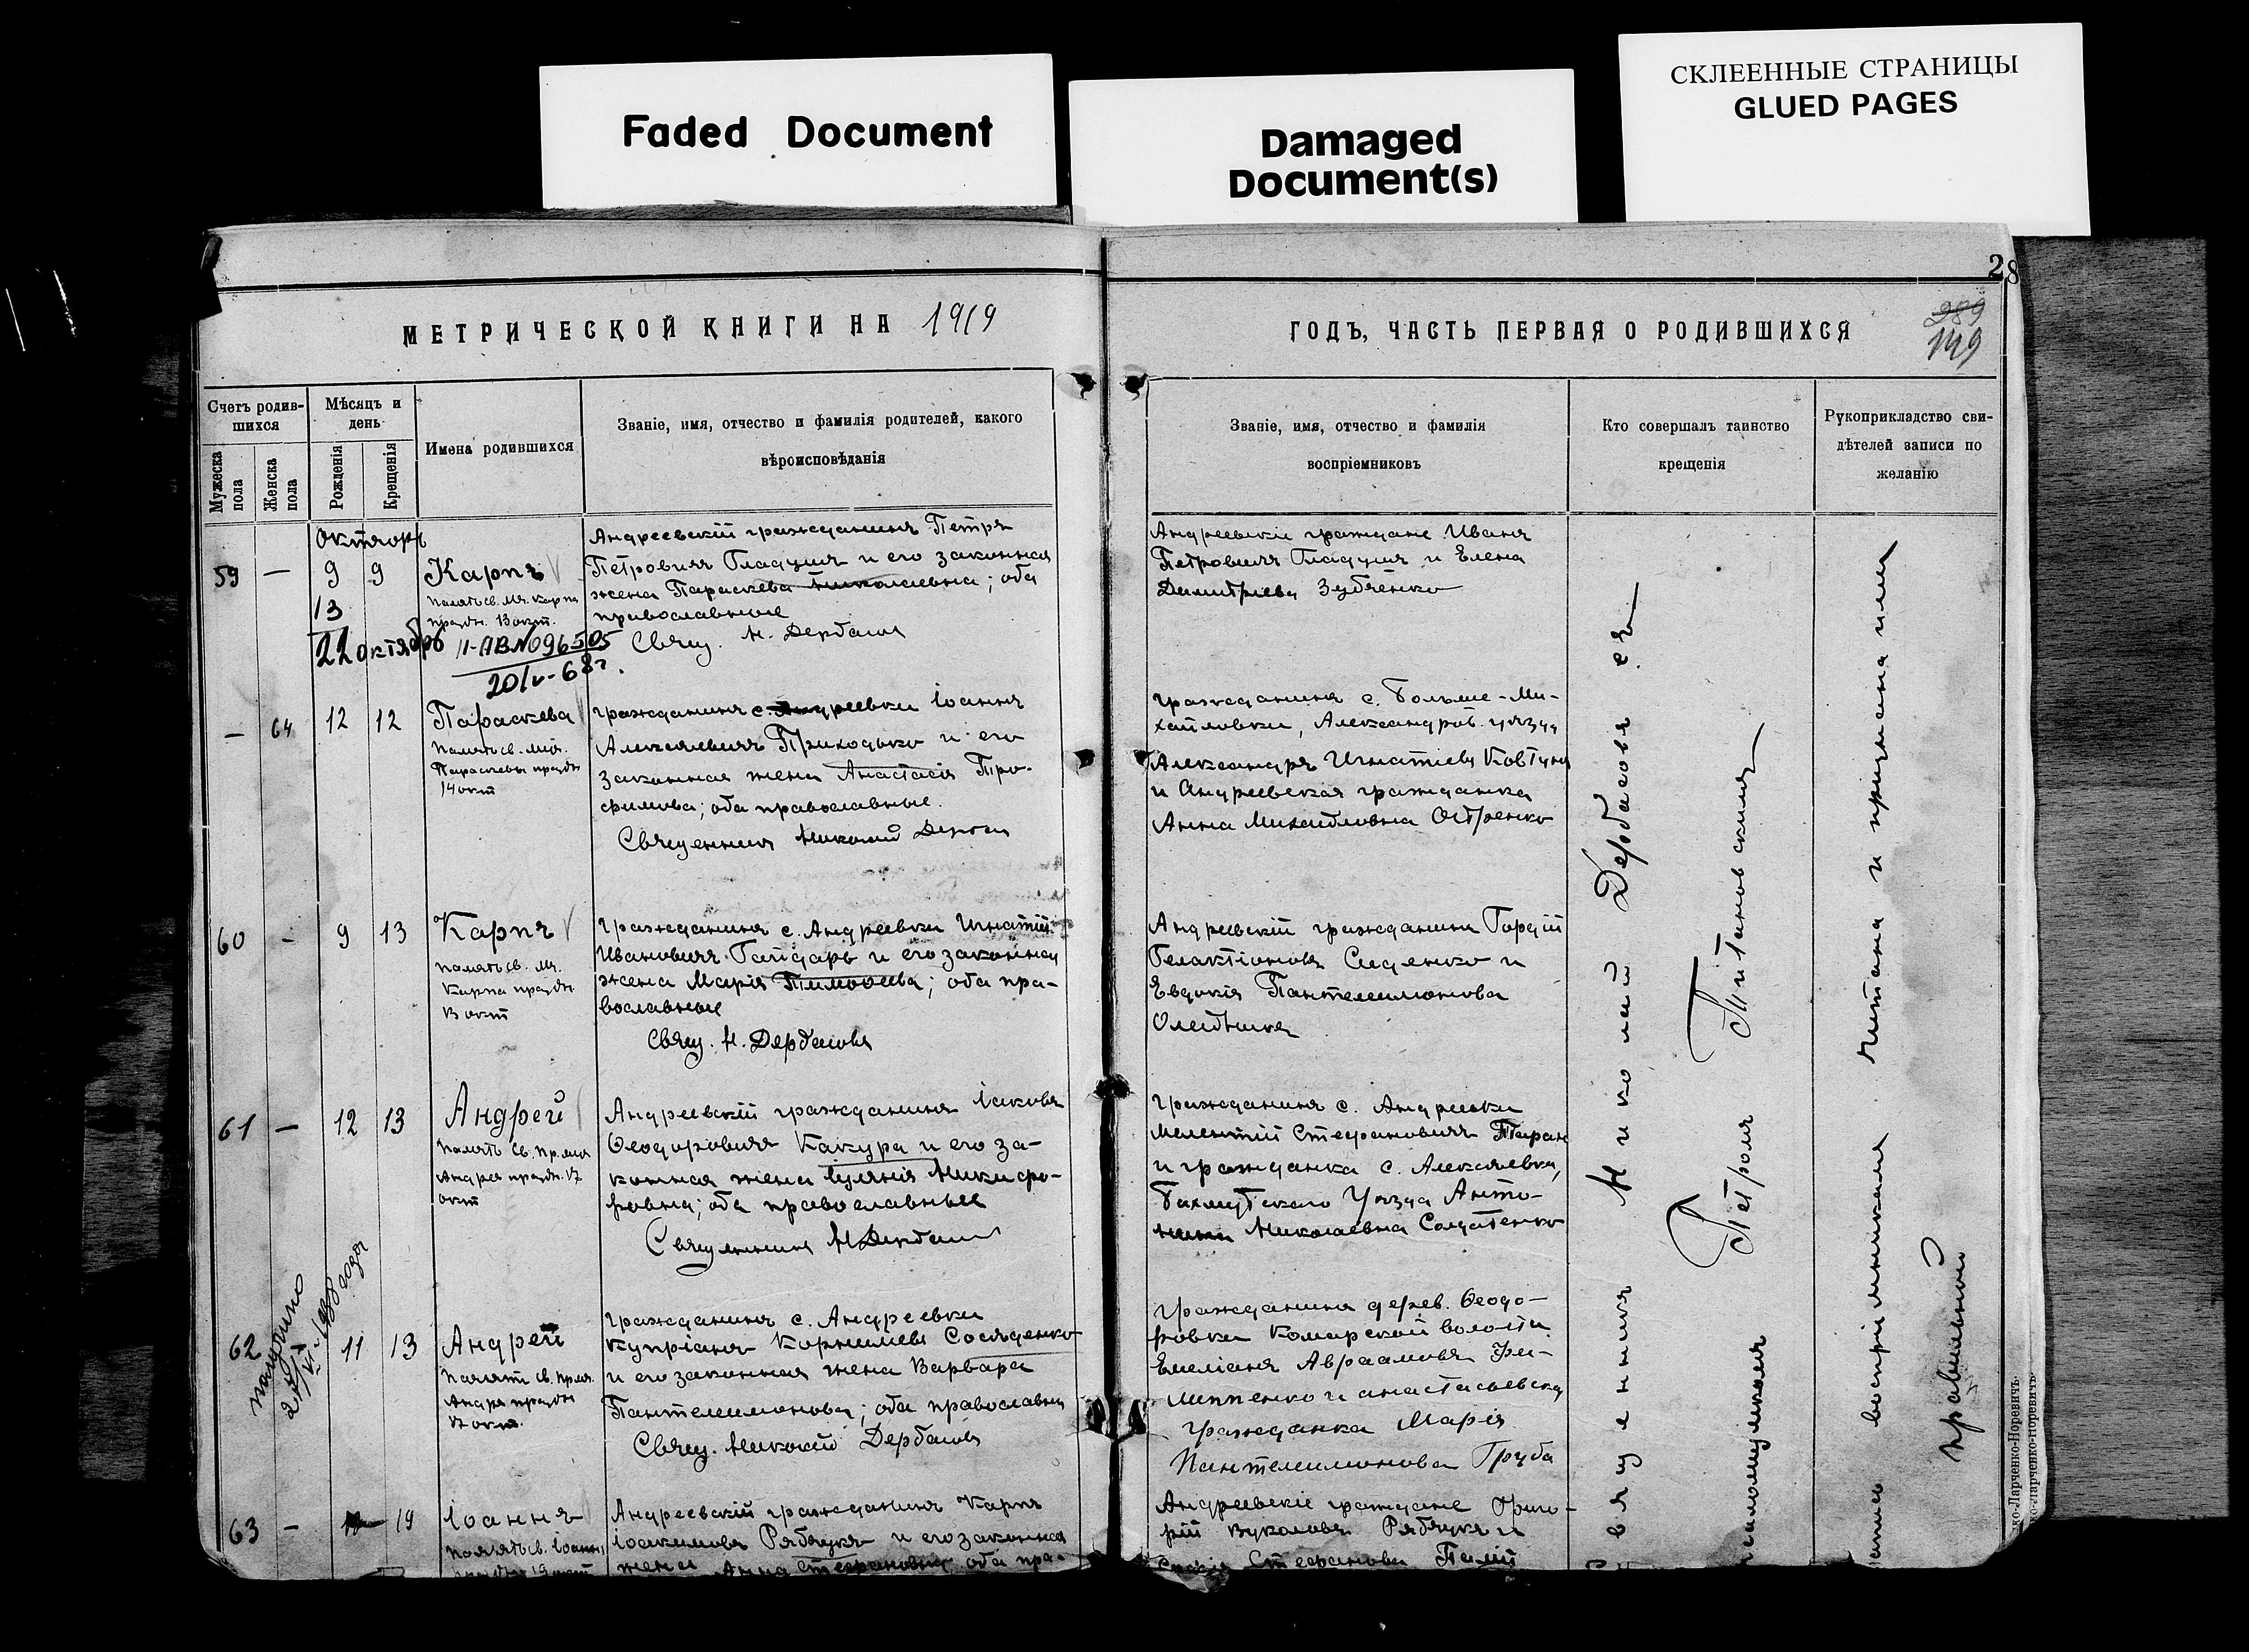 Faded Document
Damaged
Document(s)
СКЛЕЕННЫЕ СТРАНИЦЫ
GLUED PAGES
28
МЕТРИЧЕСКОЙ КНИГИ НА 1919
ГОДЪ, ЧАСТЬ ПЕРВАЯ О РОДИВШИХСЯ
289
149
Счетъ родив-
шихся
Мужеска
пола
Женска
пола
Мѣсяцъ и
день
Рожденія
Крещенія
Имена родившихся
Званіе, имя, отчество и фамилія родителей, какого
вѣроисповѣданія
Званіе, имя, отчество и фамилія
воспріемниковъ
Кто совершалъ таинство
крещенія
Рукоприкладство сви-
дѣтелей записи по
желанію
59 — 9 9 Карпъ
13
22 октября
Память св. мч. Карпа
праздн. 13 окт.
II-АВ №096505
20/V-68г.
Андреевскій гражданинъ Петръ
Петровичъ Гладушъ и его законная
жена Параскева Николаевна; оба
православные
Свящ. Н. Дербасовъ
Андреевскіе граждане Иванъ
Петровичъ Гладушъ и Елена
Димитріева Зубченко
— 64 12 12 Параскева
Память св. мч.
Параскевы праздн
14 окт
гражданинъ с. Андреевки Іоаннъ
Алексѣевичъ Приходько и его
законная жена Анастасія Тро-
фимова; оба православные.
Священникъ Николай
гражданинъ с. Больше-Ми-
хайловки, Александров. уѣзда
Александръ Игнатіевъ Ковтунъ
и Андреевская гражданка
Анна Михайловна
60 - 9 13 Карпъ
Память св. мч.
Карпа праздн
13 окт
гражданинъ с. Андреевки Игнатій
Ивановичъ Гайдаръ и его законная
жена Марія Тимоѳеева; оба пра-
вославные
Свящ. Н. Дербасовъ
Андреевскій гражданинъ Гордій
Галактіоновъ и
Евдокія Пантелеимонова
61 — 12 13 Андрей
Память св. пр. мч.
Андрея праздн. 17
окт
Андреевскій гражданинъ Іаковъ
Ѳеодоровичъ Какура и его за-
конная жена Іуліанія Никифо-
ровна; оба православные
Священникъ Н Дербасовъ
гражданинъ с. Андреевки
Мелентій Стефановичъ Таранъ
и гражданка с. Алексѣевка,
Бахмутскаго Уѣзда Анто-
нина Николаевна Солдатенко
62 11 13 Андрей
получено
1938 года
Память св. пр. мч.
Андрея праздн
17 окт.
гражданинъ с. Андреевки
Купріанъ Корниліевъ
и его законная жена Варвара
Пантелеимонова; оба православны
Свящ. Николай Дербасовъ
гражданинъ дерев. Ѳеодо-
ровки Комарской волости
Емеліанъ Авраамовъ Фи-
липенко и анастасьевская
гражданка Марія
Пантелеимонова Груба
63 — 19 Іоаннъ
Память св. Іоанна
Андреевскій гражданинъ Карпъ
Іоакимовъ Рябчукъ и его законная
жена Анна Стефановна оба пра-
Андреевскіе граждане Григо-
рій Вуколовъ Рябчукъ и
Стефанова Палій
Священникъ Николай Дербасовъ съ
псаломщикомъ Петромъ Титановскимъ
воспріемниками читана и признана ими
правильной